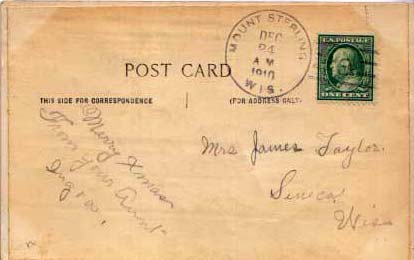 MOUNT STERLING
DEC
24
A M
1910
WIS.
U.S. POSTAGE
ONE CENT
POST CARD
THIS SIDE FOR CORRESPONDENCE
(FOR ADDRESS ONLY)
Merry Xmas
From your Aunt
Mrs James Taylor.
Seneca
Wis